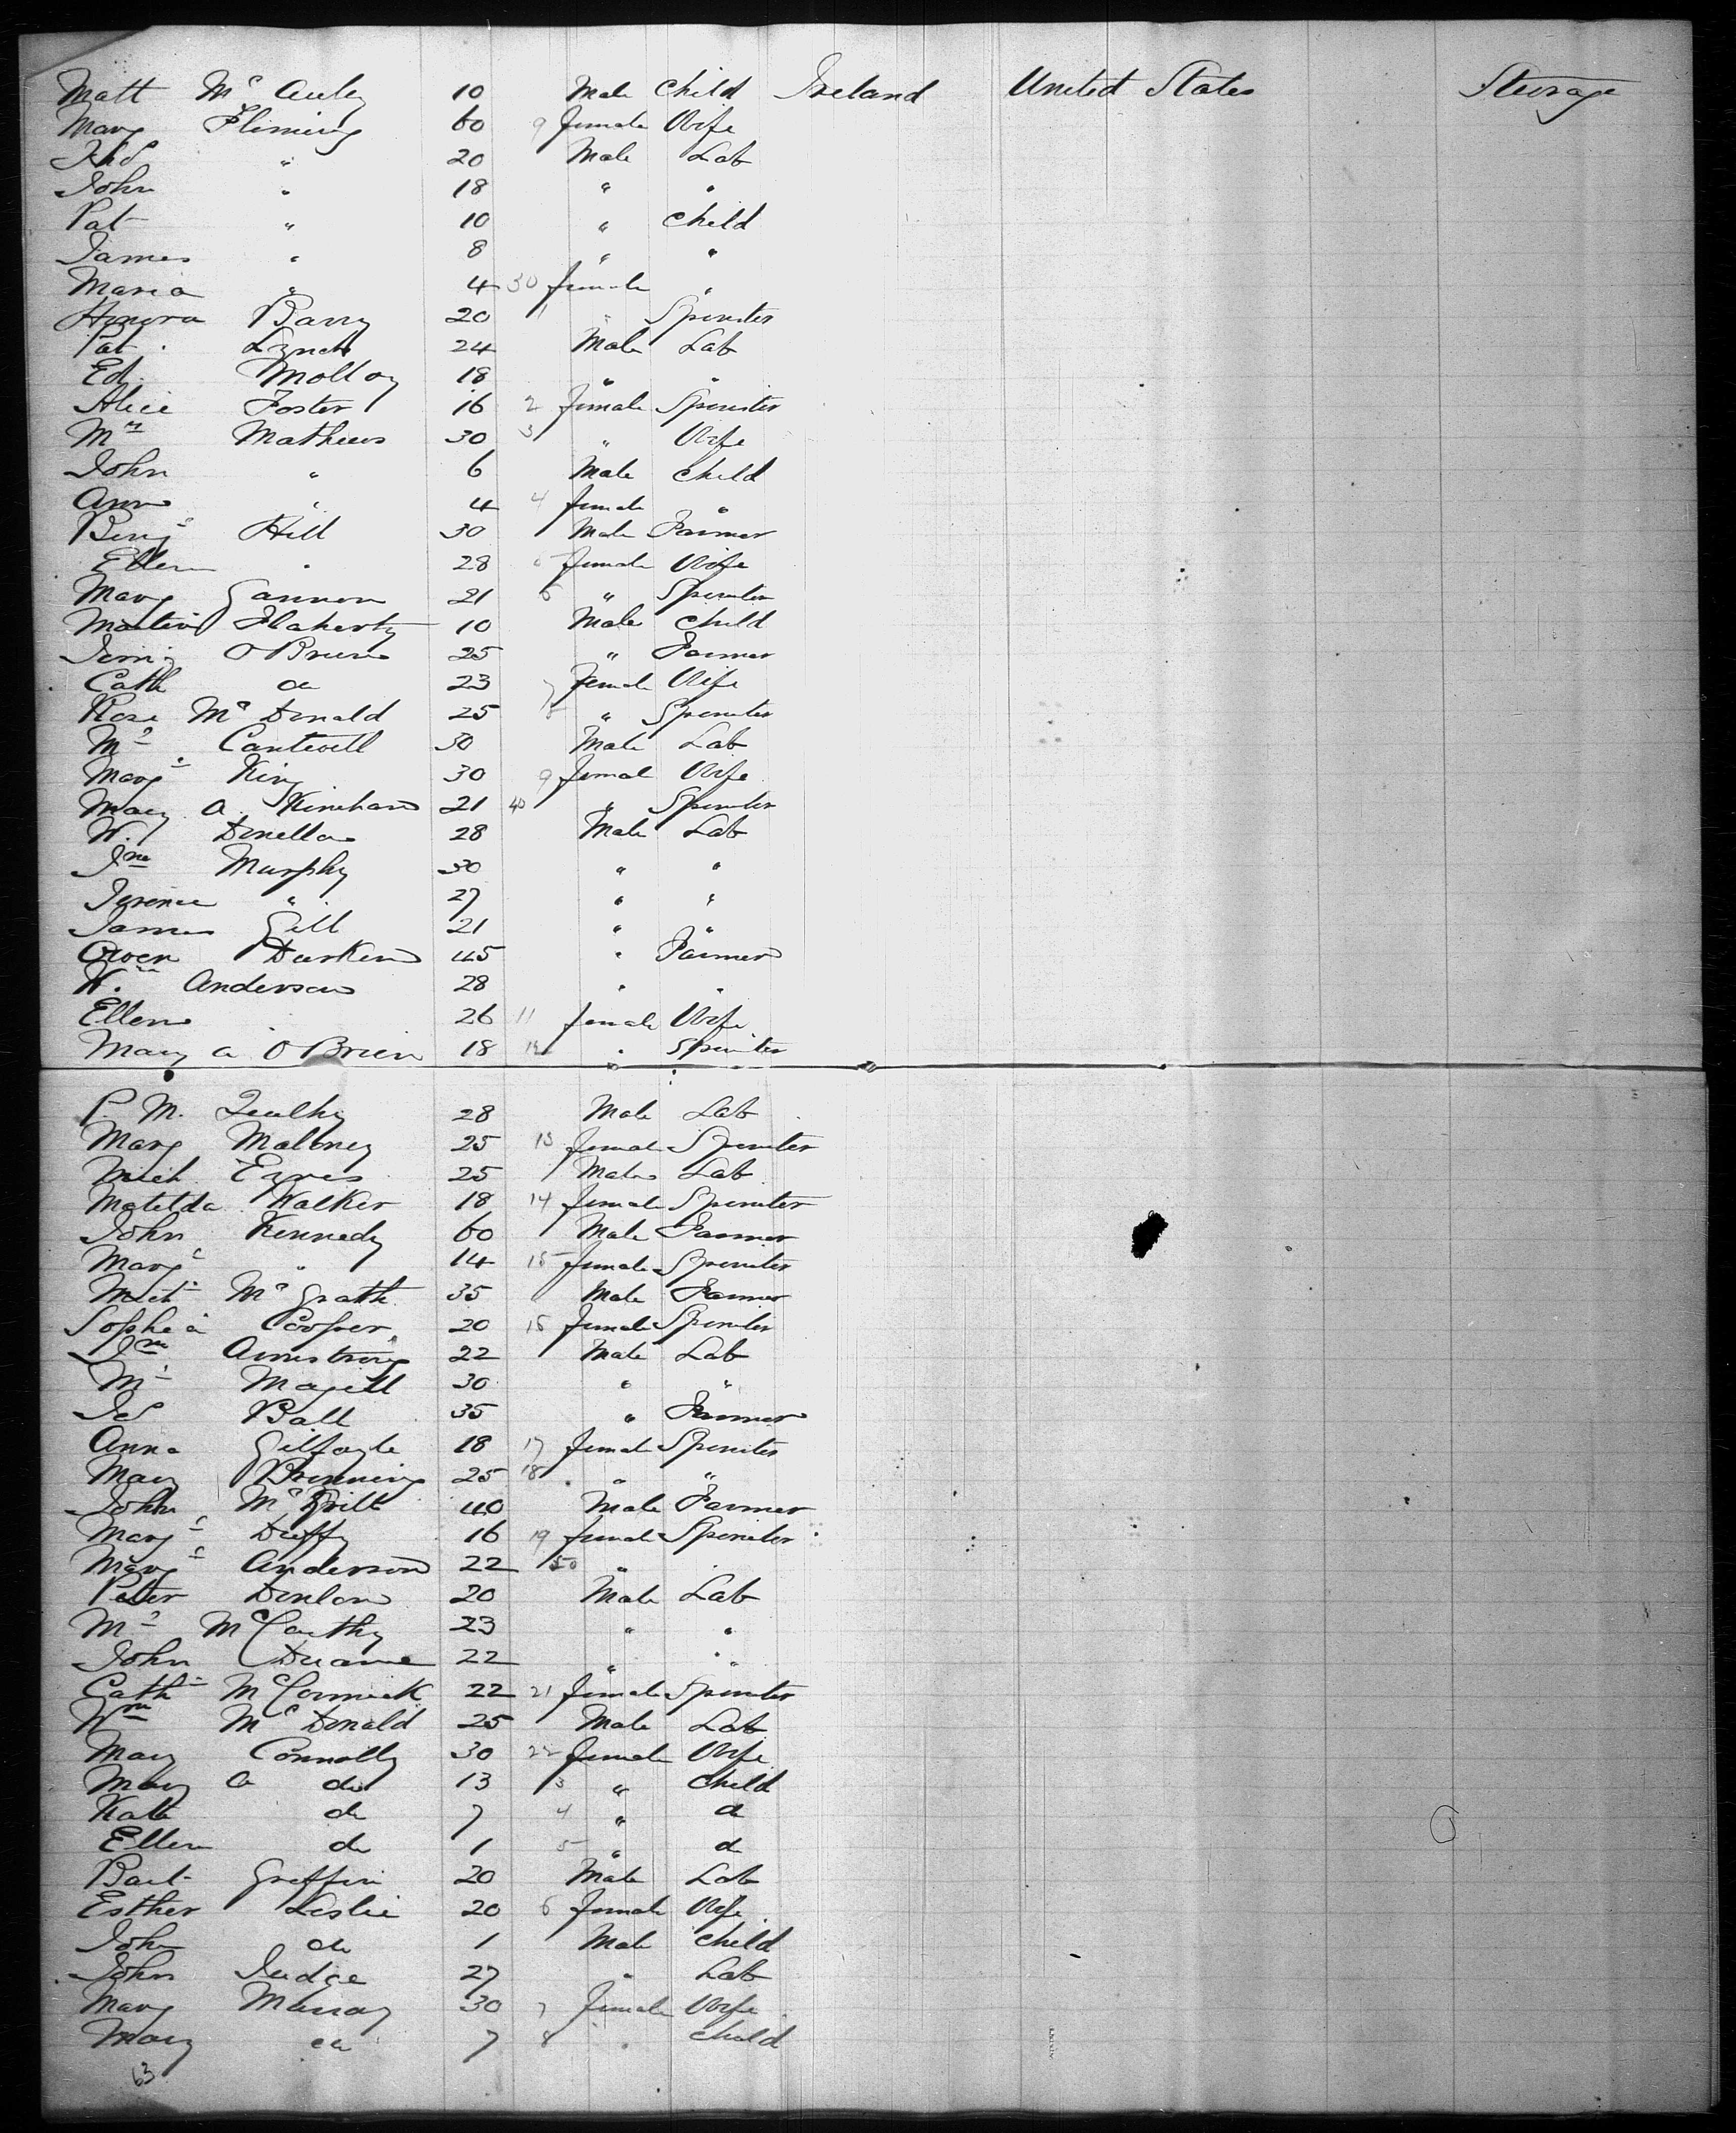 Matt McAuley 10 Male Child Ireland United States Steerage
Marg Fliming 60 9 female Wife
" 20 Male Lab
John " 18 " "
Pat " 10 " Child
James " 8 " "
Maria " 4 30 female "
Honora Barry 20 1 " Spinster
Pat Lynch 24 Male Lab
Ed. Molloy 18 " "
Alice Foster 16 2 female Spinster
Mathews 30 3 " Wife
John " 6 Male Child
Ann " 4 4 female "
Benj Hill 30 Male Farmer
Ellen " 28 female Wife
Mary Gannon 21 6 " Spinster
Martin Flaherty 10 Male Child
O'Brien 25 " Farmer
Cath do 23 7 female Wife
Rose McDonald 25 8 " Spinster
Cantwell 50 Male Lab
Marg King 30 9 female Wife
Mary A. Kinehan 21 40 " Spinster
W. 28 Male Lab
Jno Murphy 30 " "
Terence " 27 " "
James Gill 21 " "
Owen Durkin 45 " Farmer
Wm Anderson 28 " "
Ellen 26 11 female Wife
Mary A O'Brien 18 12 " Spinster
P. M. 28 Male Lab
Marg Maloney 25 13 female Spinster
Mich 25 Male Lab
Matilda Walker 18 14 female Spinster
John Kennedy 60 Male Farmer
Marg " 14 15 female Spinster
Mich McGrath 35 Male Farmer
Sophia Cooper 20 16 female Spinster
Jno Armstrong 22 Male Lab
Magill 30 " "
Jas Ball 35 " Farmer
Anna Gilfoyle 18 17 female Spinster
Mary 25 18 " "
John 40 Male Farmer
Marg Duffy 16 19 female Spinster
Marg Anderson 22 50 "
Peter Donlon 20 Male Lab
McCarthy 23 " "
John Duane 22 " "
Cath McCormick 22 21 female Spinster
Wm McDonald 25 Male Lab
Mary Connolly 30 22 female Wife
Mary A do 13 3 " Child
Kate do 7 4 " do
Ellen do 1 5 " do
Bart Griffin 20 Male Lab
Esther Leslie 20 6 female Wife
John do 1 Male Child
John Judge 27 " Lab
Marg Murray 30 7 female Wife
Mary do 7 8 " Child
63